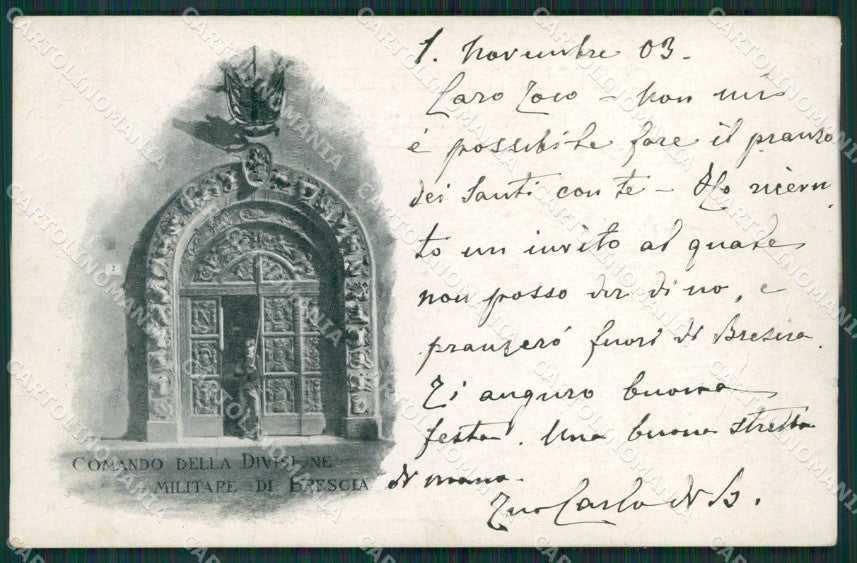 1. Novembre 03.
Caro Toio - Non mi
è possibile fare il pranzo
dei Santi con te - Ho ricevu
to un invito al quale
non posso dir di no, e
pranzerò fuori di Brescia.
Ti auguro buona
festa. Una buona stretta
di mano.
Tuo Carlo di B.
COMANDO DELLA DIVISIONE
MILITARE DI BRESCIA
2
CARTOLINOMANIA